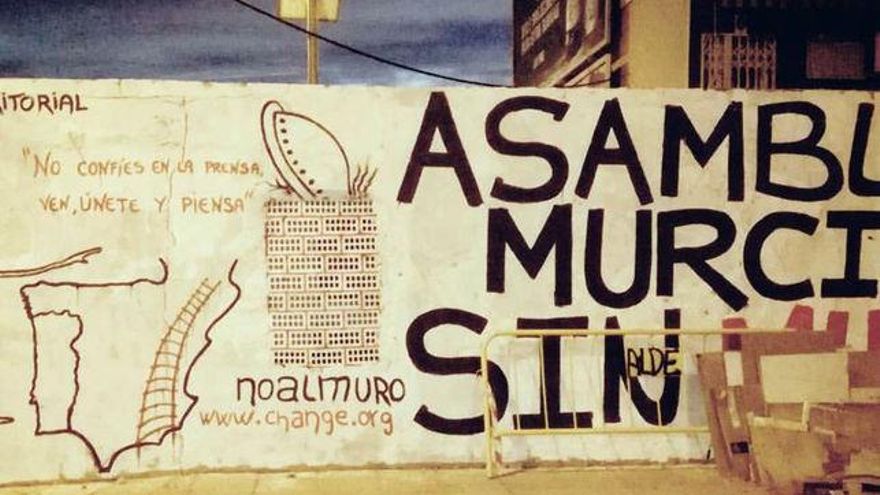 ITORIAL
"NO CONFÍES EN LA PRENSA,
VEN, ÚNETE Y PIENSA"
NOALMURO
www.change.org
ASAMBL
MURCI
SIN
ALDE